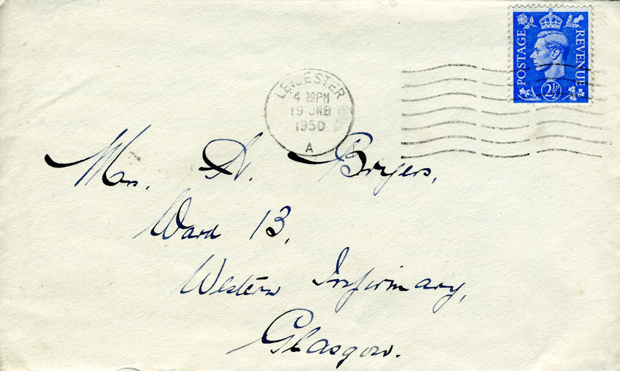 POSTAGE REVENUE
2½D
LEICESTER
4 30PM
19 JNE
1950
A
Mrs. A. Bryers,
Ward 13,
Western Infirmary,
Glasgow.